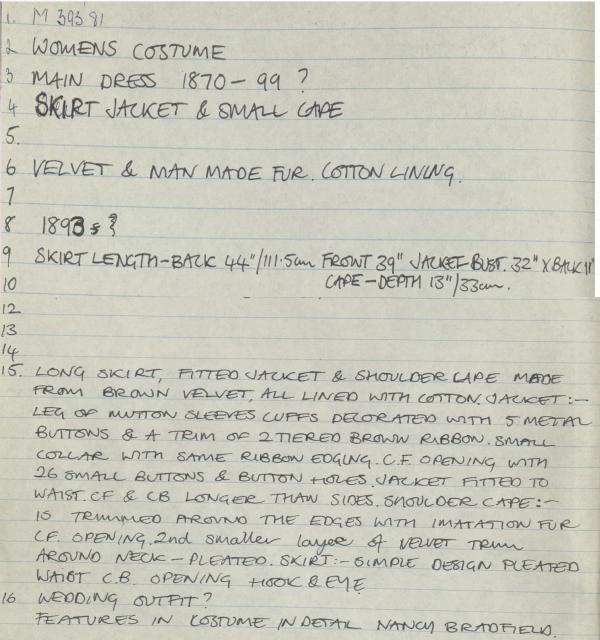 1. M 393'81
2 WOMENS COSTUME
3 MAIN DRESS 1870-99 ?
4 SKIRT JACKET & SMALL CAPE
5.
6 VELVET & MAN MADE FUR. COTTON LINING.
7
8 1893s ?
9 SKIRT LENGTH-BACK 44"/111.5cm FRONT 39" JACKET-BUST. 32" X BACK 11"
10 CAPE-DEPTH 13"/33cm.
12
13
14
15. LONG SKIRT, FITTED JACKET & SHOULDER CAPE MADE
FROM BROWN VELVET, ALL LINED WITH COTTON. JACKET:-
LEG OF MUTTON SLEEVES CUFFS DECORATED WITH 5 METAL
BUTTONS & A TRIM OF 2 TIERED BROWN RIBBON. SMALL
COLLAR WITH SAME RIBBON EDGING. C.F. OPENING WITH
26 SMALL BUTTONS & BUTTON HOLES. JACKET FITTED TO
WAIST. CF & CB LONGER THAN SIDES. SHOULDER CAPE:-
IS TRIMMED AROUND THE EDGES WITH IMATATION FUR
C.F. OPENING. 2nd smaller layer of VELVET TRIM
AROUND NECK - PLEATED. SKIRT:- SIMPLE DESIGN PLEATED
WAIST C.B. OPENING HOOK & EYE
16 WEDDING OUTFIT?
FEATURES IN COSTUME IN DETAIL NANCY BRADFIELD.